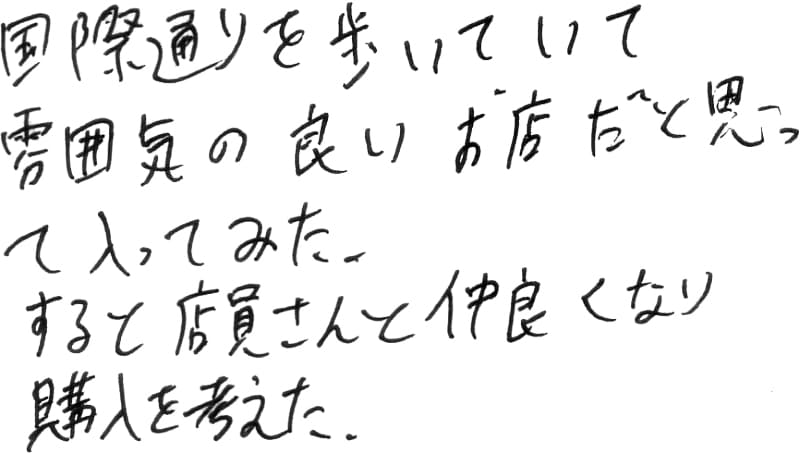 国際通りを歩いていて
雰囲気の良いお店だと思っ
て入ってみた。
すると店員さんと仲良くなり
購入を考えた。